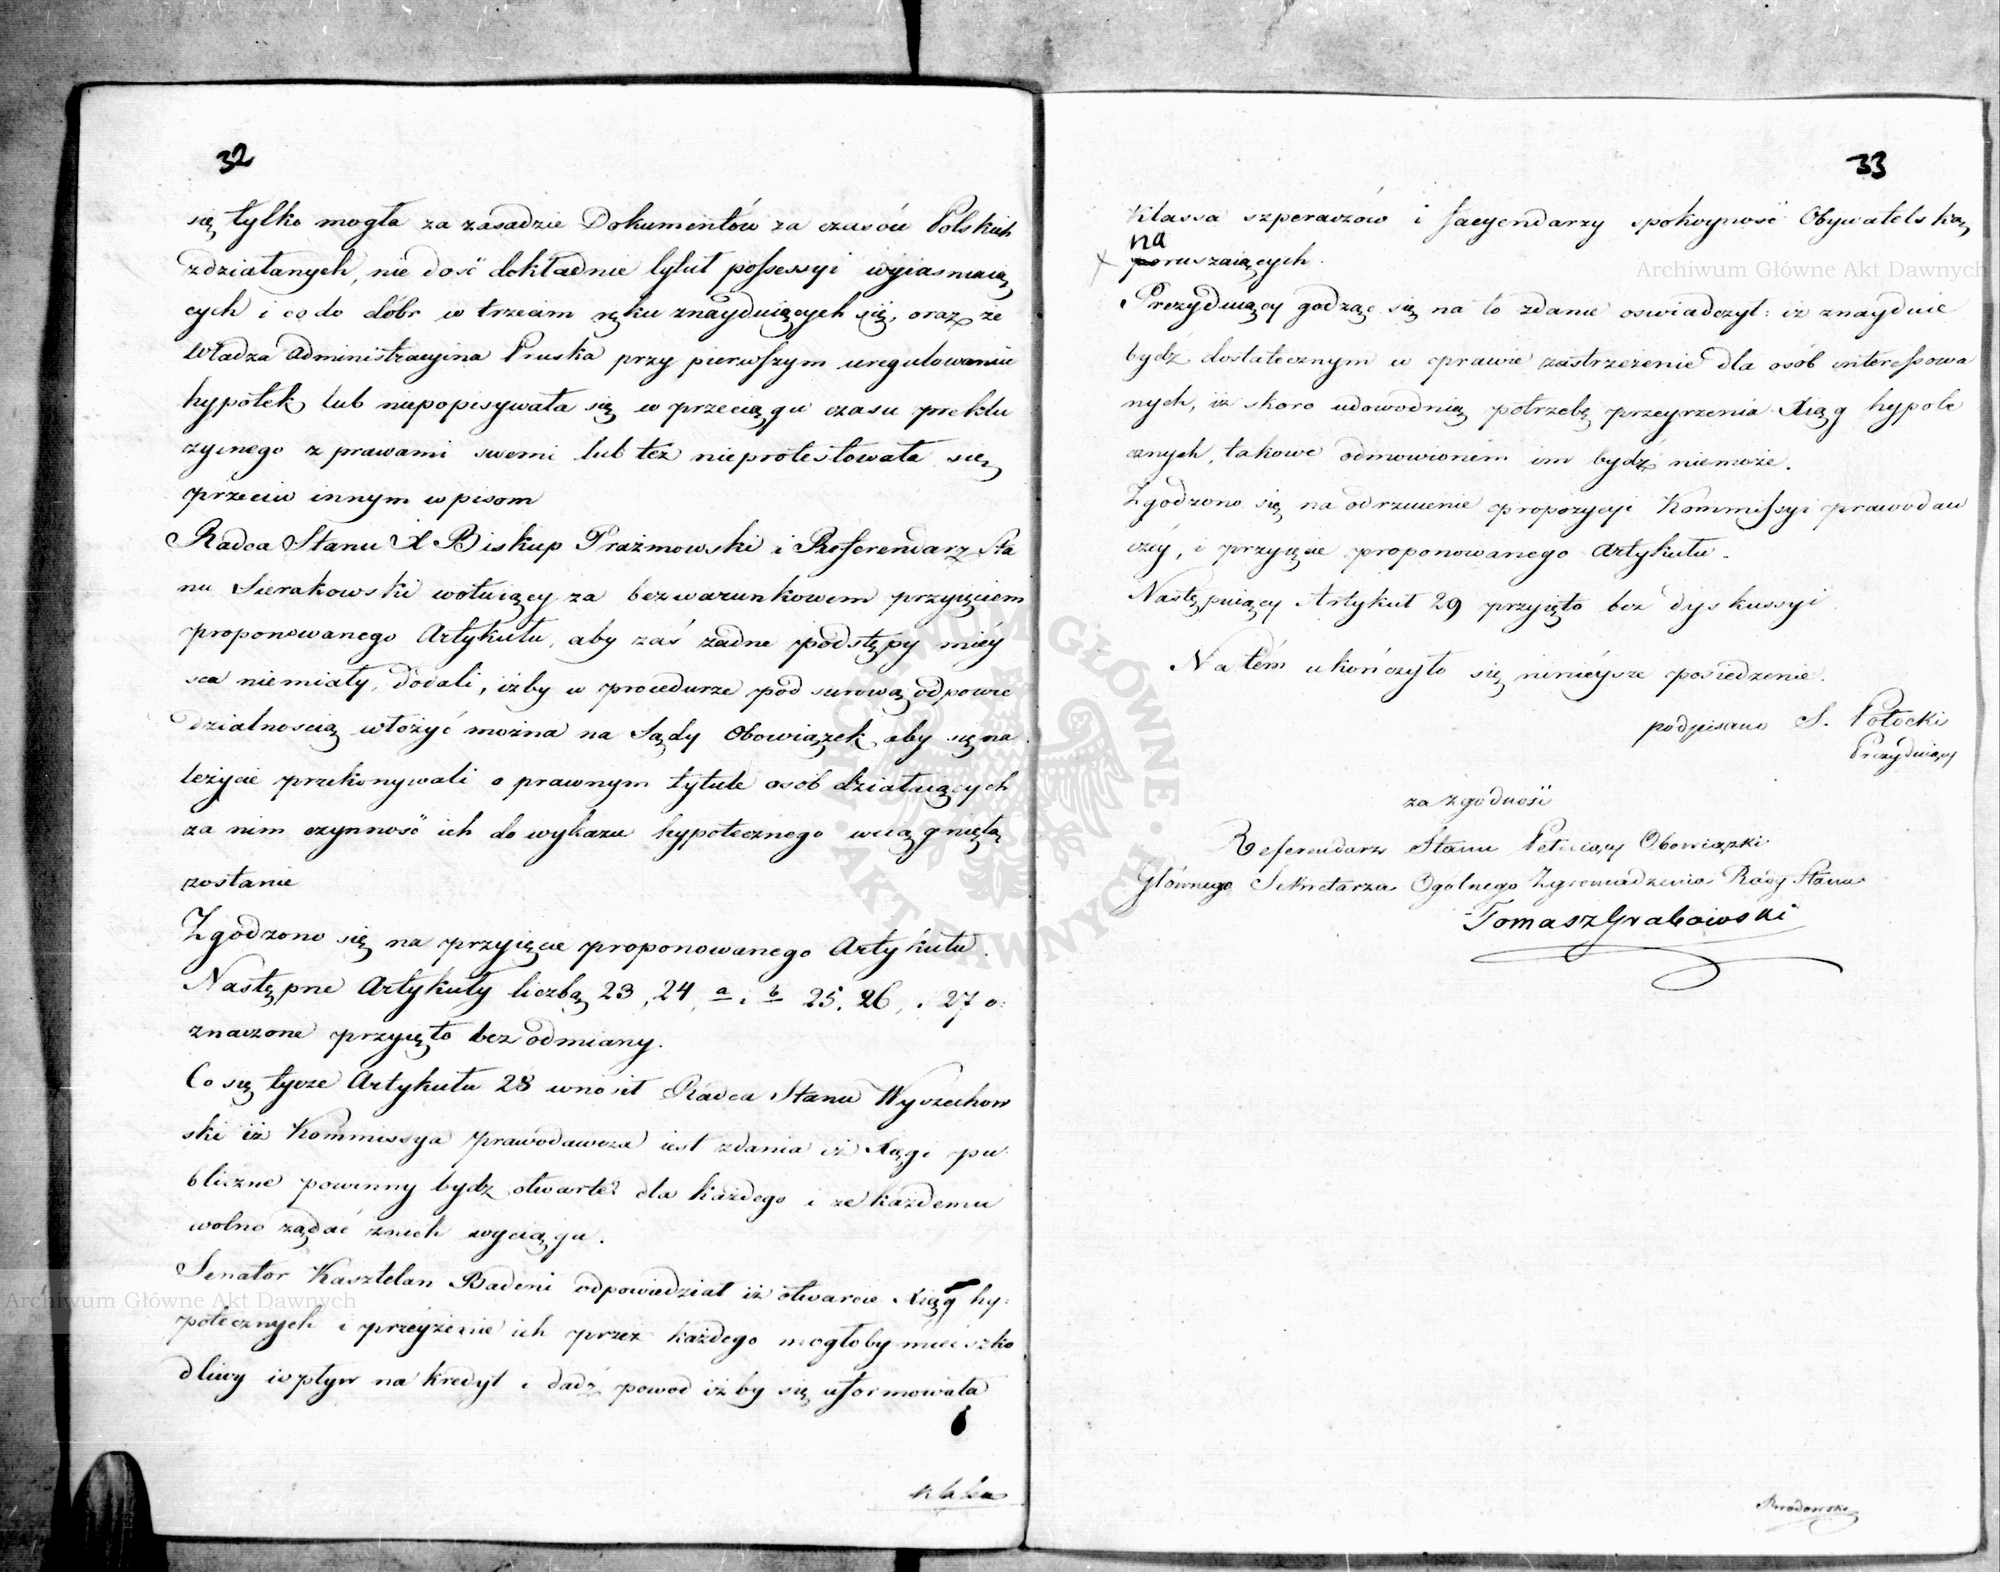 32
się tylko mogła za zasadzie Dokumentów za czasów Polskich
zdziałanych, nie dosć dokładnie tytuł possessyi wyiasniaią
cych i co do dóbr w trzecim ręku znayduiących się, oraz że
władza administracyina Pruska przy pierwszym uregulowaniu
hypotek lub niepopisywała się w przeciągu czasu preklu
zyinego z prawami swemi lub też nieprotestowała się
przeciw innym wpisom
Radca Stanu X Biskup Prażmowski i Referendarz Sta
nu Sierakowski wotuiący za bezwarunkowem przyięciem
proponowanego Artykułu, aby zaś żadne podstępy miéy
sca niemiały, dodali, iżby w procedurze pod surową odpowie
dzialnoscią włożyć można na Sądy Obowiązek aby się na
leżycie przekonywali o prawnym tytule osób działaiących
za nim czynność ich do wykazu hypotecznego wciągniętą
zostanie
Zgodzono się na przyięcie proponowanego Artykułu.
Następne Artykuły liczbą 23, 24, a i b 25, 26, i 27 o:
znaczone przyięto bez odmiany.
Co się tycze Artykułu 28 wnosił Radca Stanu Wyczechow
ski iż Kommissya prawodawcza iest zdania iż Xięgi pu
bliczne powinny bydz otwarte dla każdego i że każdemu
wolno żądać znich wyciągu.
Senator Kasztelan Badeni odpowiedział iż otwarcie Xiąg hy:
potecznych i przeyżenie ich przez każdego mogłoby mieć szko
dliwy wpływ na kredyt i dadź powod iżby się uformowała
klassa
33
Klassa szperaczów i facyendarzy spokoyność Obywatelską
na
poruszaiących.
Prezyduiący godząc się na to zdanie oswiadczył: iż znayduie
bydz dostatecznym w prawie zastrzeżenie dla osób interessowa
nych, iż skoro udowodnią potrzebę przeyrzenia Xiąg hypote
cznych, takowe odmowionem im bydź niemoże.
Zgodzono się na odrzucenie propozycyi Kommissyi prawodaw
czéy, i przyięcie proponowanego Artykułu.
Następuiący Artykuł 29 przyięto bez dyskussyi
Na tém ukończyło się ninieysze posiedzenie.
podpisano S. Potocki
Prezyduiący
za zgodność
Referendarz Stanu Pełniący Obowiązki
Głównego Sekretarza Ogólnego Zgromadzenia Rady Stanu
Tomasz Grabowski
Brodowski
Archiwum Główne Akt Dawnych
Archiwum Główne Akt Dawnych
ARCHIWUM GŁÓWNE · AKT DAWNYCH ·